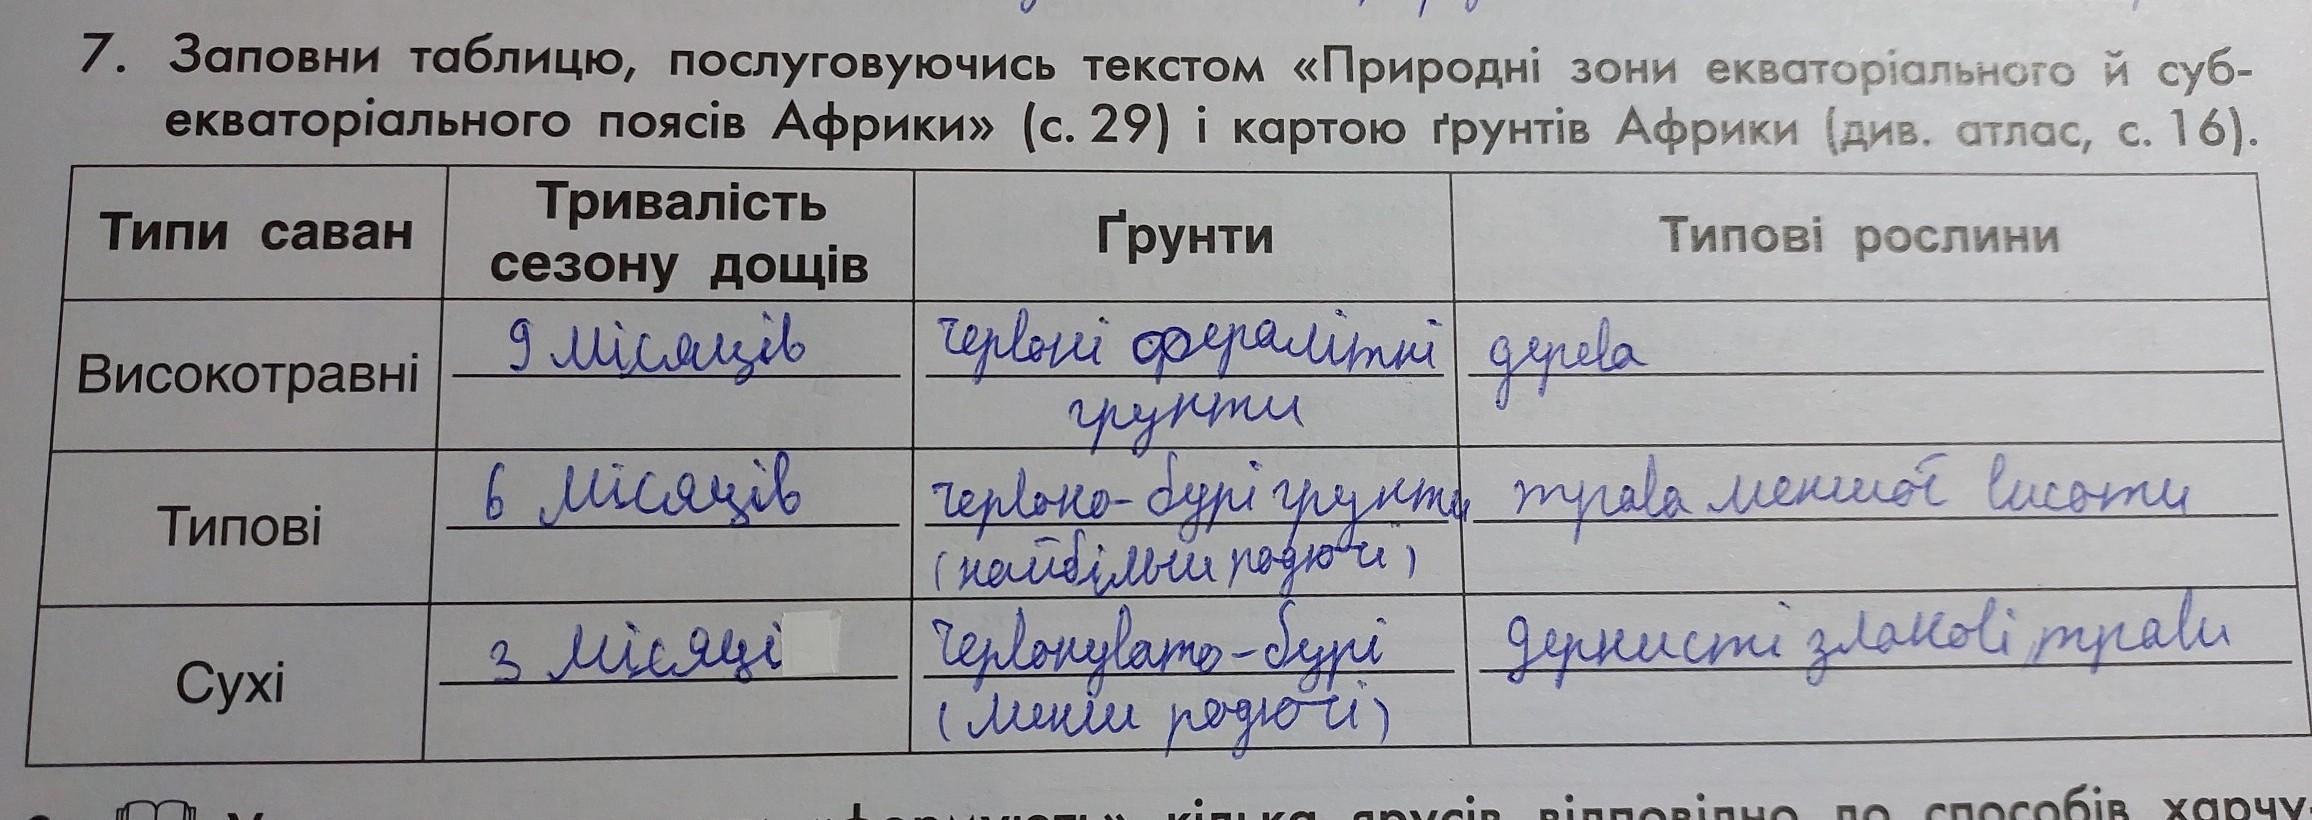 7. Заповни таблицю, послуговуючись текстом «Природні зони екваторіального й суб-
екваторіального поясів Африки» (с. 29) і картою ґрунтів Африки (див. атлас, с. 16).
Типи саван
Тривалість
сезону дощів
Ґрунти
Типові рослини
Високотравні
9 місяців
червоні фералітні
грунти
дерева
Типові
6 місяців
червоно-бурі грунти
(найбільш родючі)
трава меншої висоти
Сухі
3 місяці
Червонувато-бурі
(менш родючі)
дернисті злакові трави
кілька ярусів відповідно до способів харчу-